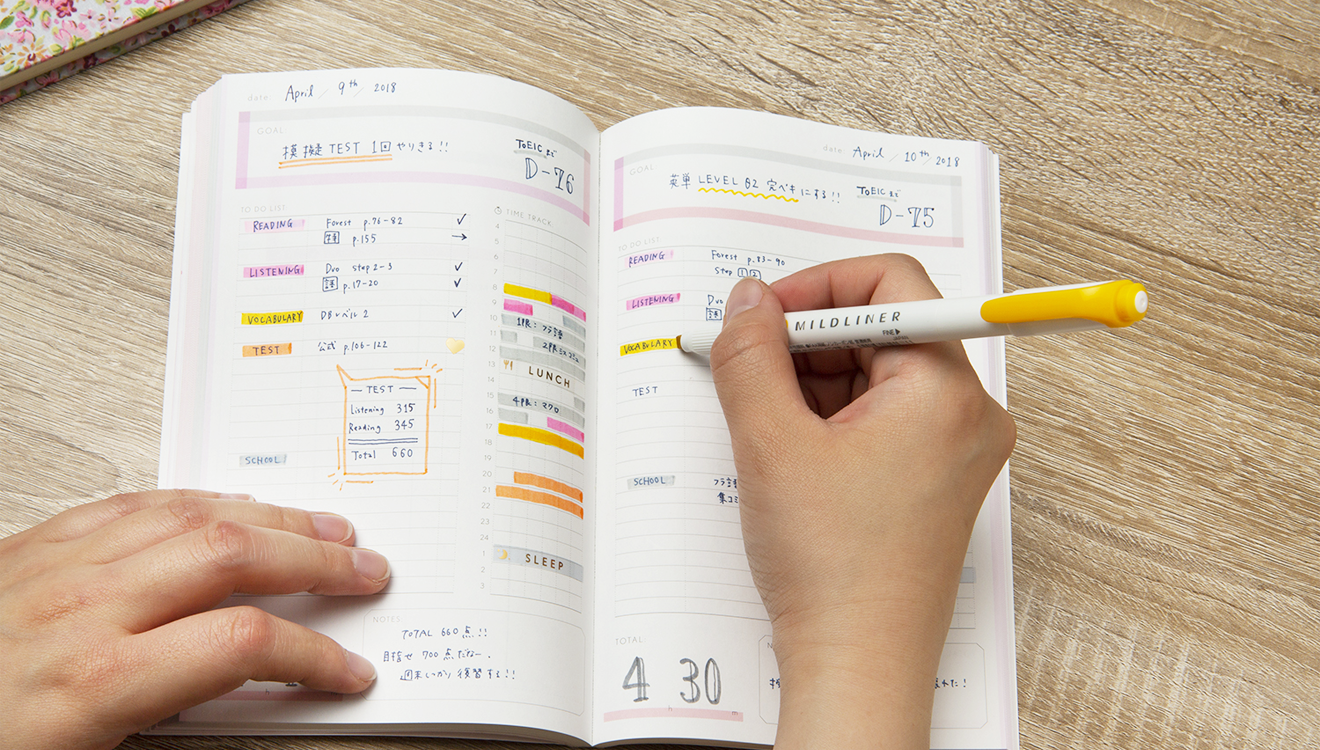 date: April / 9th / 2018
GOAL:
模擬TEST 1回やりきる!!
TOEICまで
D-76
TO DO LIST:
READING Forest p.76-82 ✓
p.155 →
LISTENING Duo step 2-3 ✓
p.17-20 ✓
VOCABULARY DBレベル2 ✓
TEST 公式 p.106-122
TEST
Listening 315
Reading 345
Total 660
SCHOOL
TIME TRACK
4
5
6
7
8
9
10 1PR: フラ語
11
12 2PR
13 LUNCH
14
15
16 4PR: マクロ
17
18
19
20
21
22
23
24
1 SLEEP
2
3
NOTES
TOTAL 660点!!
目指せ 700点だなー.
週末しっかり復習する!!
h
date: April / 10th / 2018
GOAL:
英単 LEVEL 02 完ペキにする!!
TOEICまで
D-75
TO DO LIST:
READING Forest p.83-90
Step 1 2
LISTENING Duo
VOCABULARY
TEST
SCHOOL フラ語
集コミ
TOTAL:
4 30
h m
MILDLINER
FINE▶